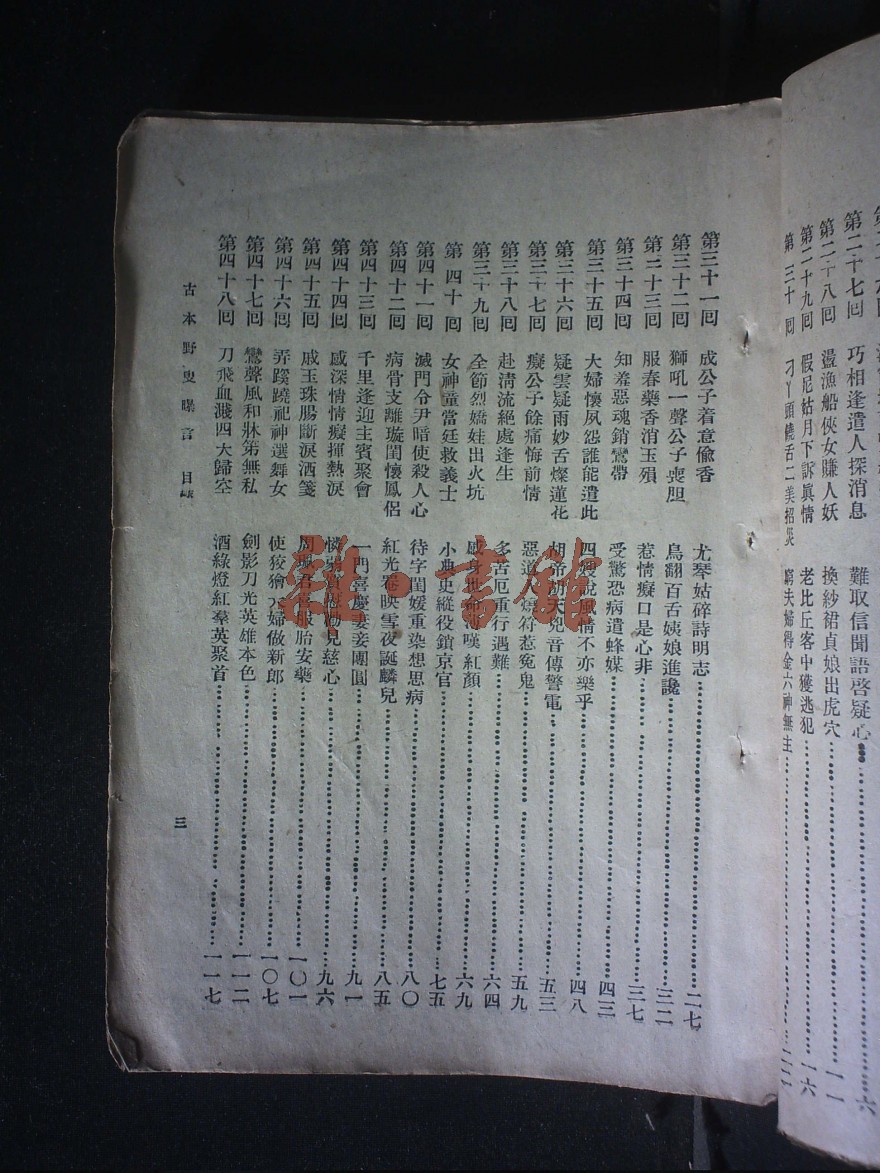 第二十七回 巧相逢遣人探消息 難取信聞語啓疑心
第二十八回 盪漁船俠女賺人妖 換紗裙貞娘出虎穴 一一
第二十九回 假尼姑月下訴眞情 老比丘客中獲逃犯 一六
第三十回 刁丫頭饒舌二美招災 窮夫婦得金六神無主
第三十一回 成公子着意偷香 尤琴姑碎詩明志 二七
第三十二回 獅吼一聲公子喪胆 鳥翻百舌姨娘進讒 三二
第三十三回 服春藥香消玉殞 惹情癡口是心非 三七
第三十四回 知羞惡魂銷鸞帶 受驚恐病遣蜂媒 四三
第三十五回 大婦懷夙怨誰能遣此 四嫂說風情不亦樂乎 四八
第三十六回 疑雲疑雨妙舌燦蓮花 胡帝胡天兇音傳警電 五三
第三十七回 癡公子餘痛悔前情 惡道 燒符惹冤鬼 五九
第三十八回 赴淸流絕處逢生 多苦厄重行遇難 六四
第三十九回 全節烈嬌娃出火坑 嘆紅顏 六九
第四十回 女神童當廷救義士 小典史縱役鎖京官 七五
第四十一回 滅門令尹暗使殺人心 待字閨媛重染想思病 八〇
第四十二回 病骨支離璇閨懷鳳侶 紅光 映雪夜誕麟兒 八五
第四十三回 千里逢迎主賓聚會 一門喜慶妻妾團圓 九一
第四十四回 感深情情癡揮熱淚 見慈心 九六
第四十五回 戚玉珠腸斷淚洒箋 服胎安藥 一〇一
第四十六回 弄蹊蹺祀神選舞女 使狡獪 婦做新郎 一〇七
第四十七回 鸞聲風和牀第無私 劍影刀光英雄本色 一一二
第四十八回 刀飛血濺四大歸空 酒綠燈紅羣英聚首 一一七
古本野叟曝言 目錄
三